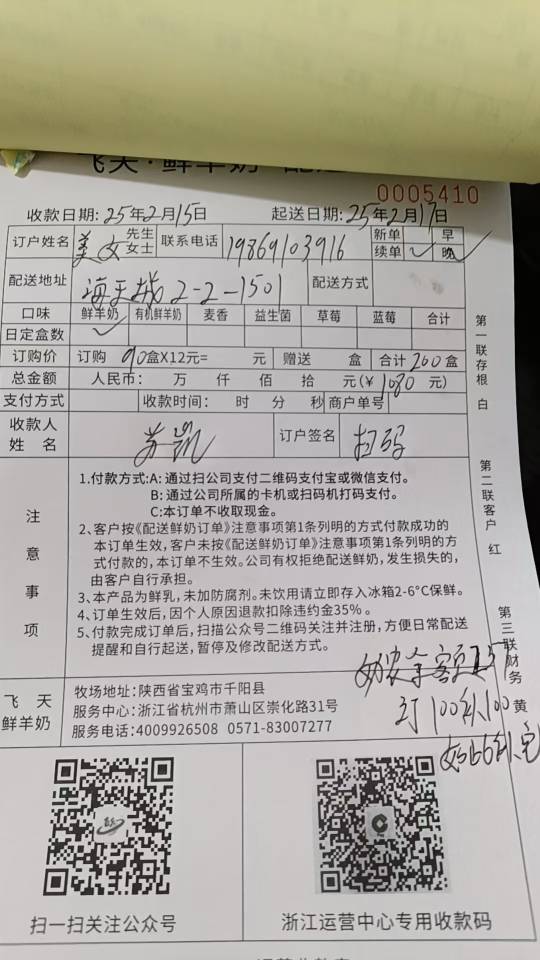 飞天·鲜羊奶
0005410
收款日期: 25年2月15日 起送日期: 25年2月17日
订户姓名 美女 先生 女士 联系电话 19869103916 新单 续单 ✓ 早 晚 ✓
配送地址 海天城2-2-1501 配送方式
口味 鲜羊奶 有机鲜羊奶 麦香 益生菌 草莓 蓝莓 合计
日定盒数 ✓
订购价 订购 90盒X12元= 元 赠送 盒 合计200盒
总金额 人民币: 万 仟 佰 拾 元(¥1080元)
支付方式 收款时间: 时 分 秒 商户单号
收款人姓名 苏凯 订户签名 扫码
注意事项
1.付款方式:A: 通过扫公司支付二维码支付宝或微信支付。
B: 通过公司所属的卡机或扫码机打码支付。
C:本订单不收取现金。
2、客户按《配送鲜奶订单》注意事项第1条列明的方式付款成功的
本订单生效，客户未按《配送鲜奶订单》注意事项第1条列明的方
式付款的，本订单不生效。公司有权拒绝配送鲜奶，发生损失的，
由客户自行承担。
3、本产品为鲜乳，未加防腐剂。未饮用请立即存入冰箱2-6°C保鲜。
4、订单生效后，因个人原因退款扣除违约金35%。
5、付款完成订单后，扫描公众号二维码关注并注册，方便日常配送
提醒和自行起送，暂停及修改配送方式。
订100补100
飞天鲜羊奶
牧场地址: 陕西省宝鸡市千阳县
服务中心: 浙江省杭州市萧山区崇化路31号
服务电话: 4009926508 0571-83007277
第一联存根 白
第二联客户 红
第三联财务 黄
扫一扫关注公众号
浙江运营中心专用收款码